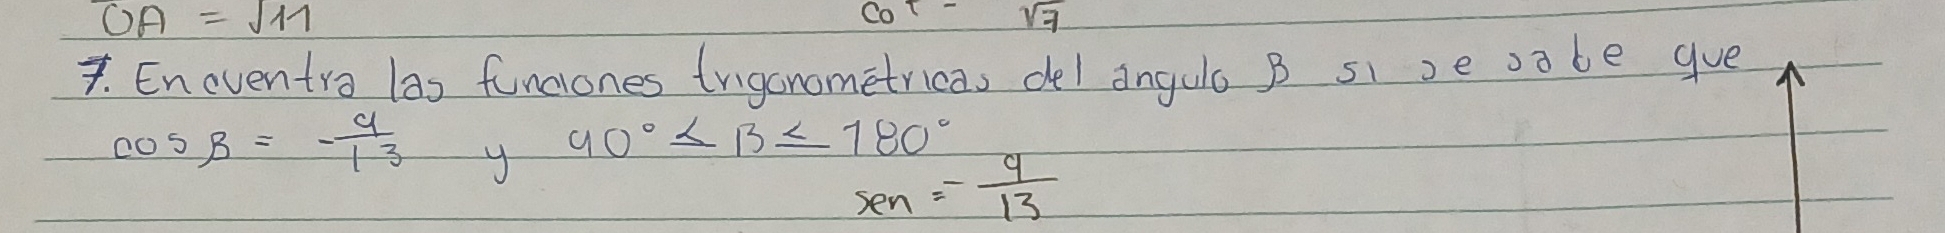 OA = √11 cot = √7
7. Encuentra las funciones trigonométricas del ángulo β si se sabe que
cos β = -9/13 y 90° ≤ β ≤ 180°
sen = -9/13